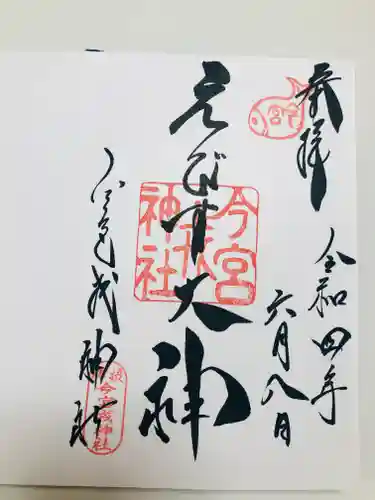 奉拝
令和四年
六月八日
えびす大神
今宮
神社
今宮戎神社
今宮戎神社